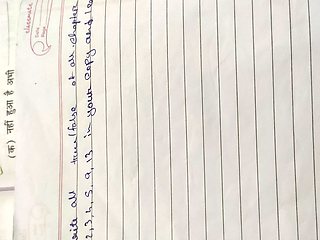 (क) नहीं हुआ है अभी
classmate
Date
Page
write all true/false of all chapter
2,3,4,5,9,13 in your copy and lea